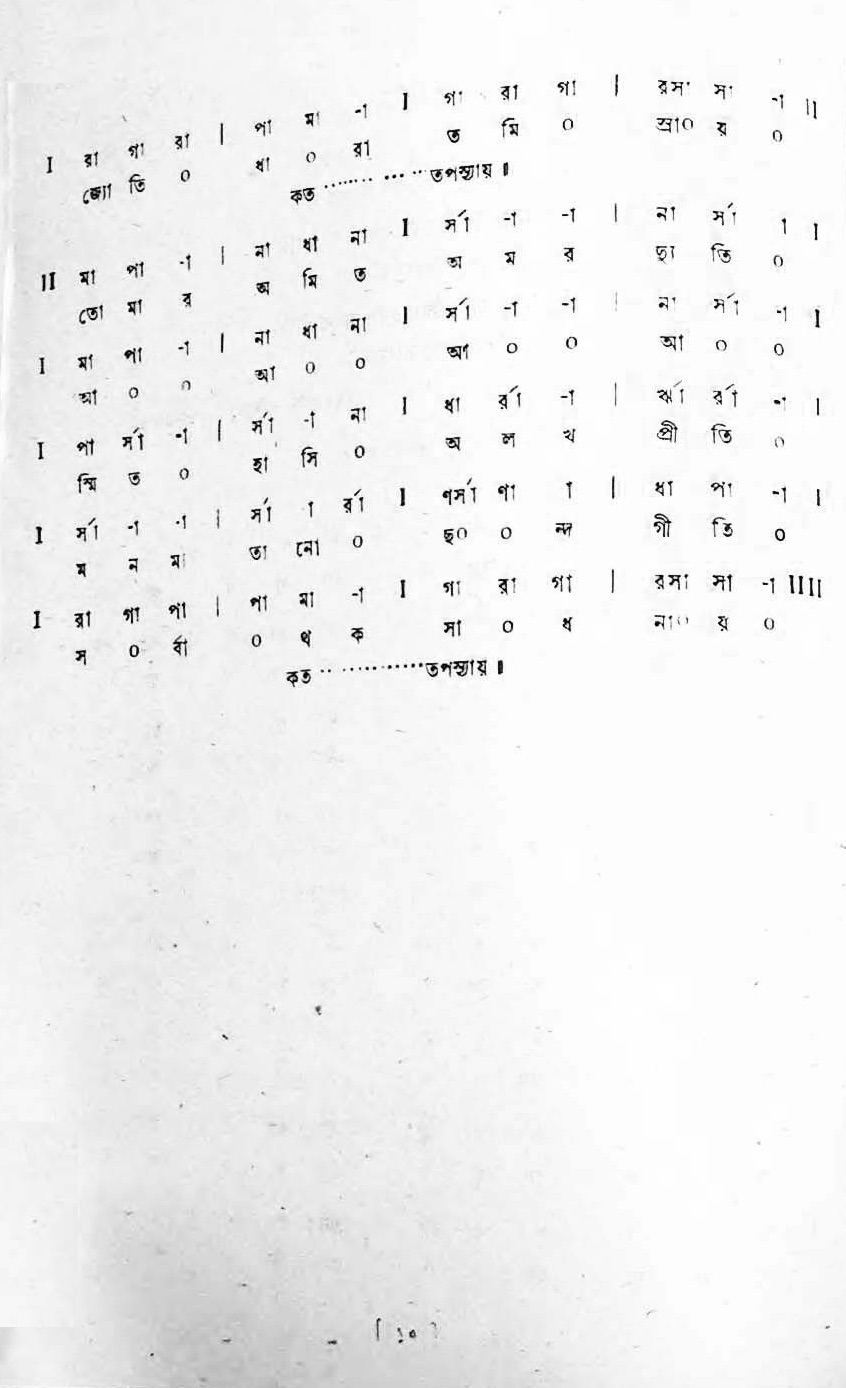 I রা গা রা | পা মা -া I গা রা গা | রসা সা -া II
জ্যো তি ০ ধা ০ রা ত মি ০ স্রা০ য় ০
কত ............ তপস্যায় ॥
II মা পা -া | না ধা না I র্সা -া -া | না র্সা া I
তো মা র অ মি ত অ ম র ছা তি ০
I মা পা -া | না ধা না I র্সা -া -া | না র্সা -া I
আ ০ ০ আ ০ ০ আ ০ ০ আ ০ ০
I পা র্সা -া | র্সা -া না I ধা র্রা -া | র্ঋা র্রা -া I
স্মি ত ০ হা সি ০ অ ল খ প্রী তি ০
I র্সা -া -া | র্সা া র্রা I ণর্সা ণা া | ধা পা -া I
ম ন মা তা নো ০ ছ০ ০ ন্দ গী তি ০
I রা গা পা | পা মা -া I গা রা গা | রসা সা -া IIII
স ০ র্বা ০ থ ক সা ০ ধ না০ য় ০
কত ............ তপস্যায় ॥
[ ১০ ]